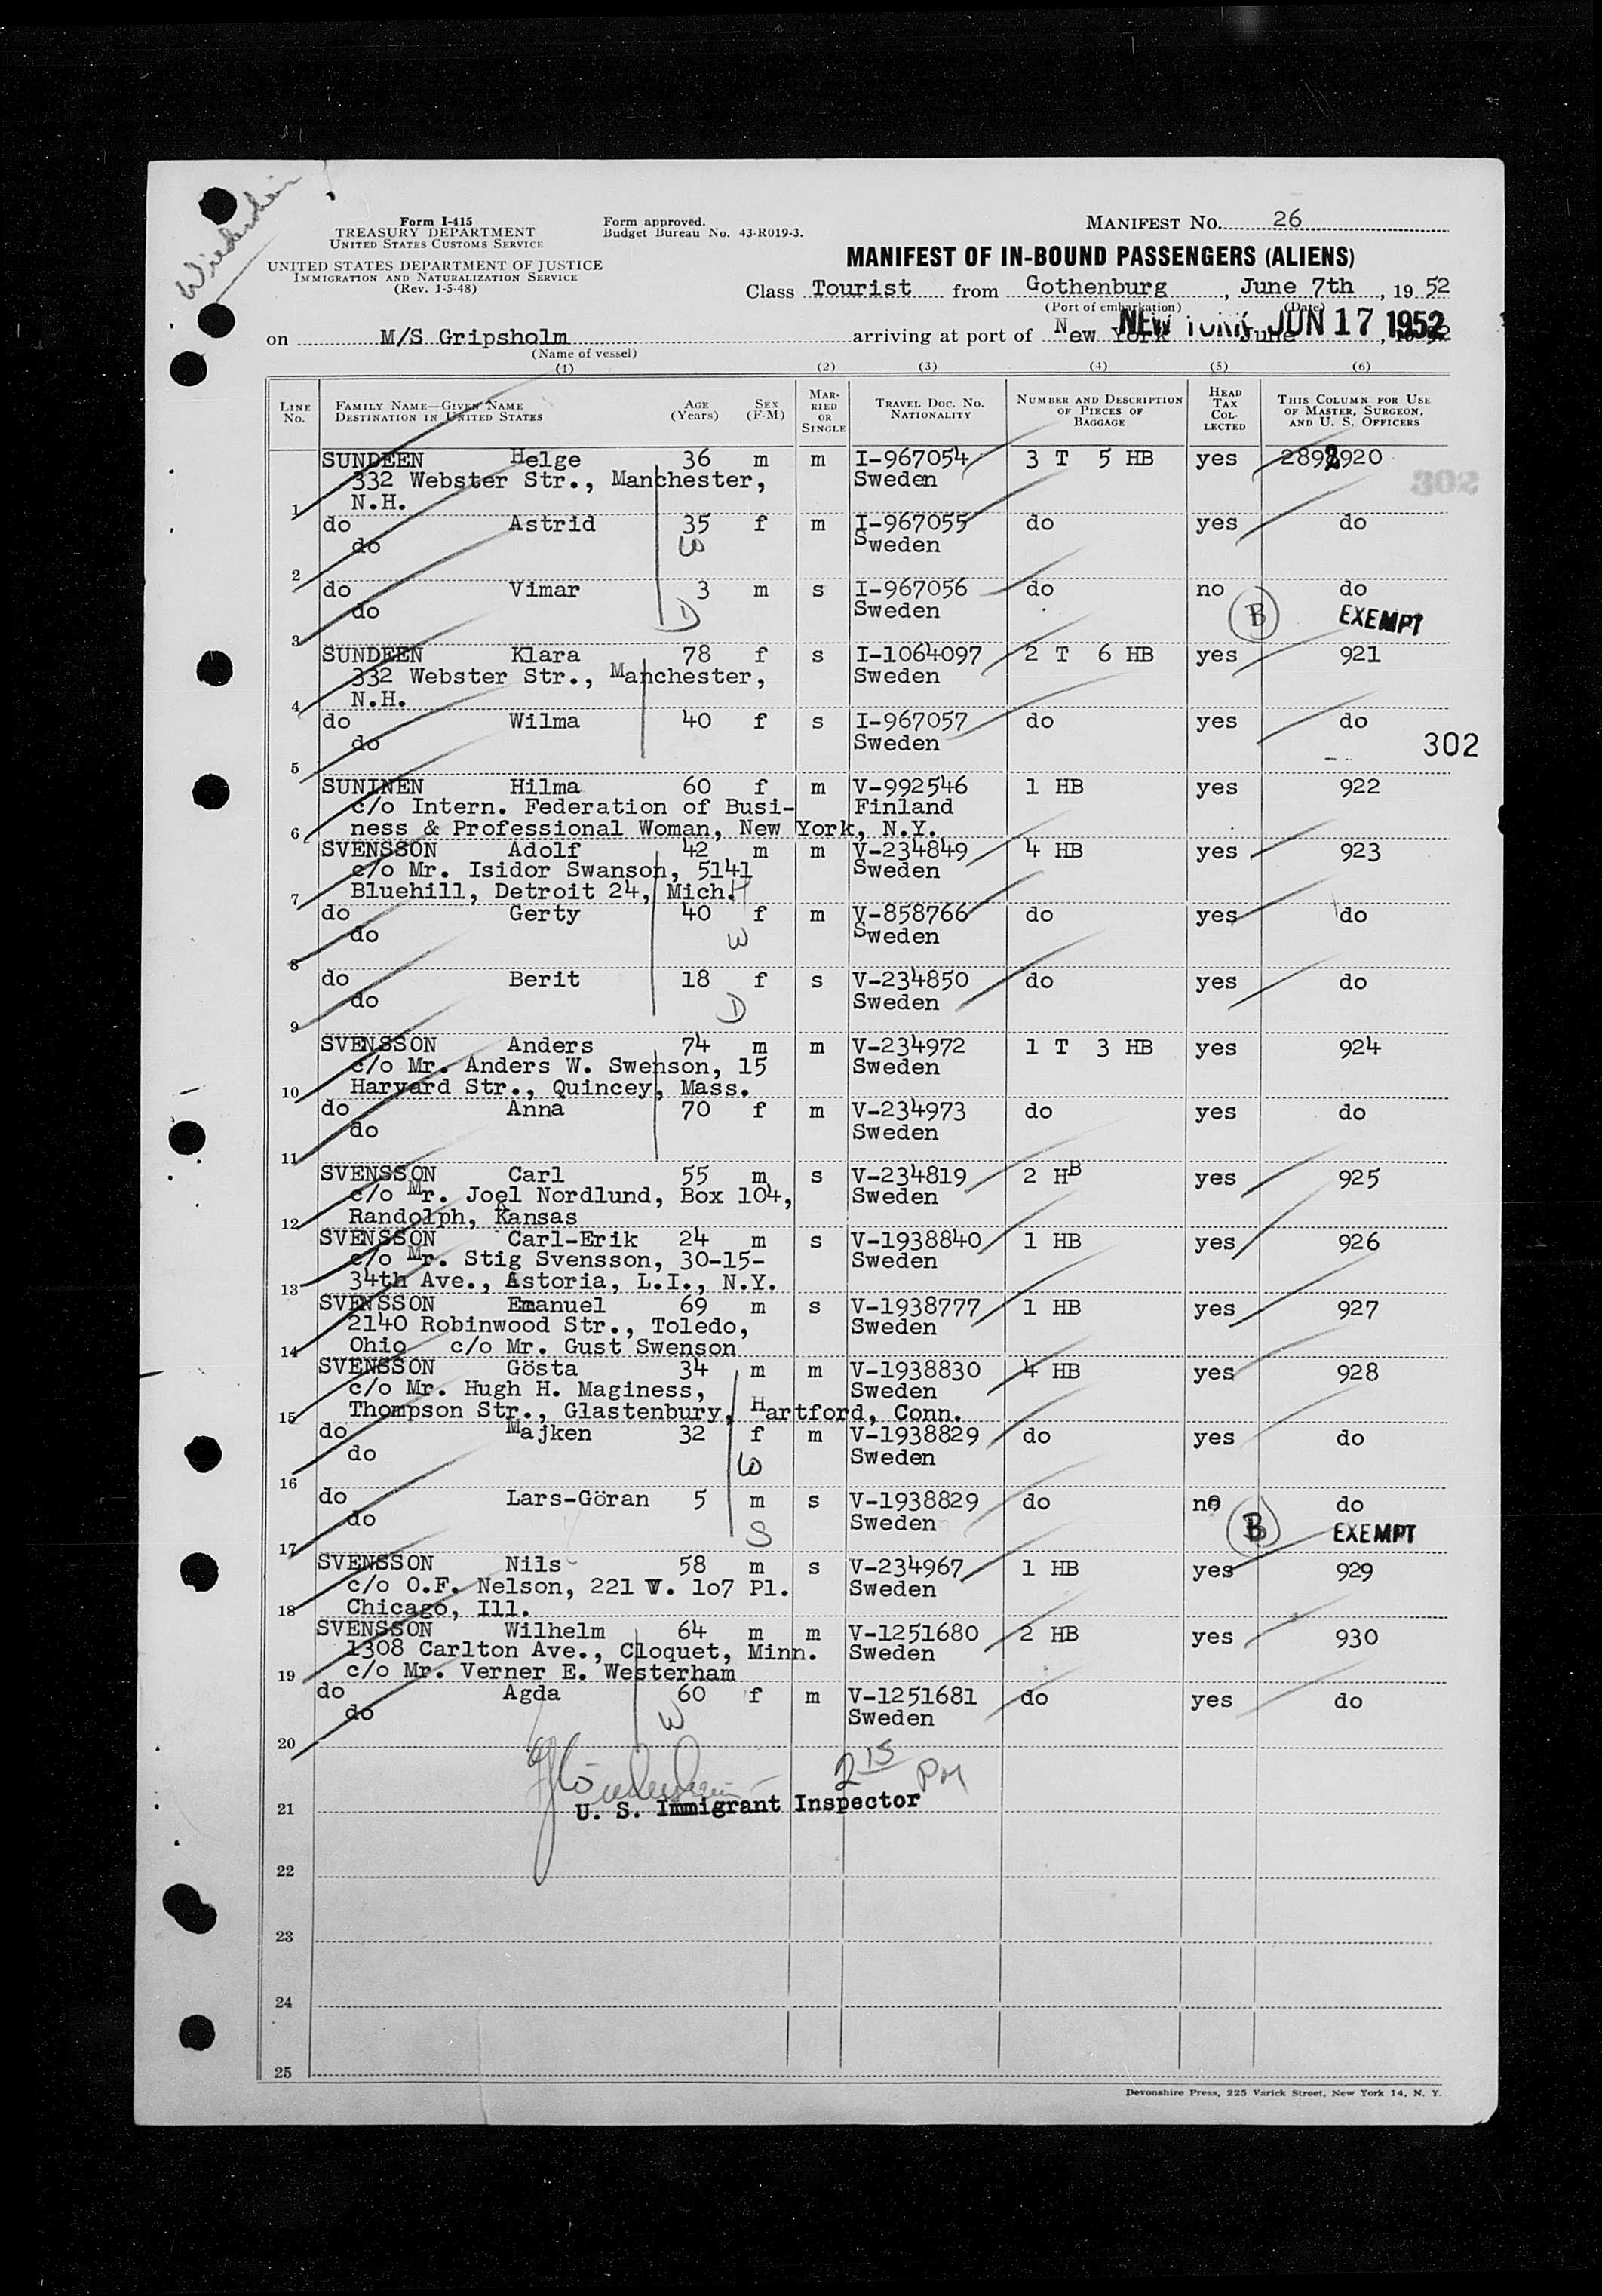 Form I-415
TREASURY DEPARTMENT
UNITED STATES CUSTOMS SERVICE
UNITED STATES DEPARTMENT OF JUSTICE
IMMIGRATION AND NATURALIZATION SERVICE
(Rev. 1-5-48)
Form approved.
Budget Bureau No. 43-R019-3.
MANIFEST NO. 26
MANIFEST OF IN-BOUND PASSENGERS (ALIENS)
Class Tourist from Gothenburg, June 7th, 19 52
(Port of embarkation) (Date)
on M/S Gripsholm arriving at port of New York June, 1952
NEW YORK JUN 17 1952
(Name of vessel)
(1) (2) (3) (4) (5) (6)
LINE No. FAMILY NAME—GIVEN NAME DESTINATION IN UNITED STATES AGE (Years) SEX (F-M) MARRIED OR SINGLE TRAVEL DOC. NO. NATIONALITY NUMBER AND DESCRIPTION OF PIECES OF BAGGAGE HEAD TAX COLLECTED THIS COLUMN FOR USE OF MASTER, SURGEON, AND U. S. OFFICERS
SUNDEEN Helge 36 m m I-967054 3 T 5 HB yes 2892920
332 Webster Str., Manchester, Sweden
1 N.H.
302
do Astrid 35 f m I-967055 do yes do
do W Sweden
2
do Vimar 3 m s I-967056 do no do
do D Sweden B EXEMPT
3
SUNDEEN Klara 78 f s I-1064097 2 T 6 HB yes 921
332 Webster Str., Manchester, Sweden
4 N.H.
do Wilma 40 f s I-967057 do yes do
do Sweden 302
5
SUNINEN Hilma 60 f m V-992546 1 HB yes 922
c/o Intern. Federation of Busi- Finland
6 ness & Professional Woman, New York, N.Y.
SVENSSON Adolf 42 m m V-234849 4 HB yes 923
c/o Mr. Isidor Swanson, 5141 Sweden
7 Bluehill, Detroit 24, Mich. H
do Gerty 40 f m V-858766 do yes do
do W Sweden
8
do Berit 18 f s V-234850 do yes do
do D Sweden
9
SVENSSON Anders 74 m m V-234972 1 T 3 HB yes 924
c/o Mr. Anders W. Swenson, 15 Sweden
10 Harvard Str., Quincey, Mass.
do Anna 70 f m V-234973 do yes do
do Sweden
11
SVENSSON Carl 55 m s V-234819 2 HB yes 925
c/o Mr. Joel Nordlund, Box 104, Sweden
12 Randolph, Kansas
SVENSSON Carl-Erik 24 m s V-1938840 1 HB yes 926
c/o Mr. Stig Svensson, 30-15- Sweden
13 34th Ave., Astoria, L.I., N.Y.
SVENSSON Emanuel 69 m s V-1938777 1 HB yes 927
2140 Robinwood Str., Toledo, Sweden
14 Ohio c/o Mr. Gust Swenson
SVENSSON Gösta 34 m m V-1938830 4 HB yes 928
c/o Mr. Hugh H. Maginess, Sweden
15 Thompson Str., Glastenbury, Hartford, Conn.
do Majken 32 f m V-1938829 do yes do
do W Sweden
16
do Lars-Göran 5 m s V-1938829 do no do
do S Sweden B EXEMPT
17
SVENSSON Nils 58 m s V-234967 1 HB yes 929
c/o O.F. Nelson, 221 W. 107 Pl. Sweden
18 Chicago, Ill.
SVENSSON Wilhelm 64 m m V-1251680 2 HB yes 930
1308 Carlton Ave., Cloquet, Minn. Sweden
19 c/o Mr. Verner E. Westerham
do Agda 60 f m V-1251681 do yes do
do W Sweden
20
2 15 PM
U. S. Immigrant Inspector
21
22
23
24
25
Devonshire Press, 225 Varick Street, New York 14, N. Y.